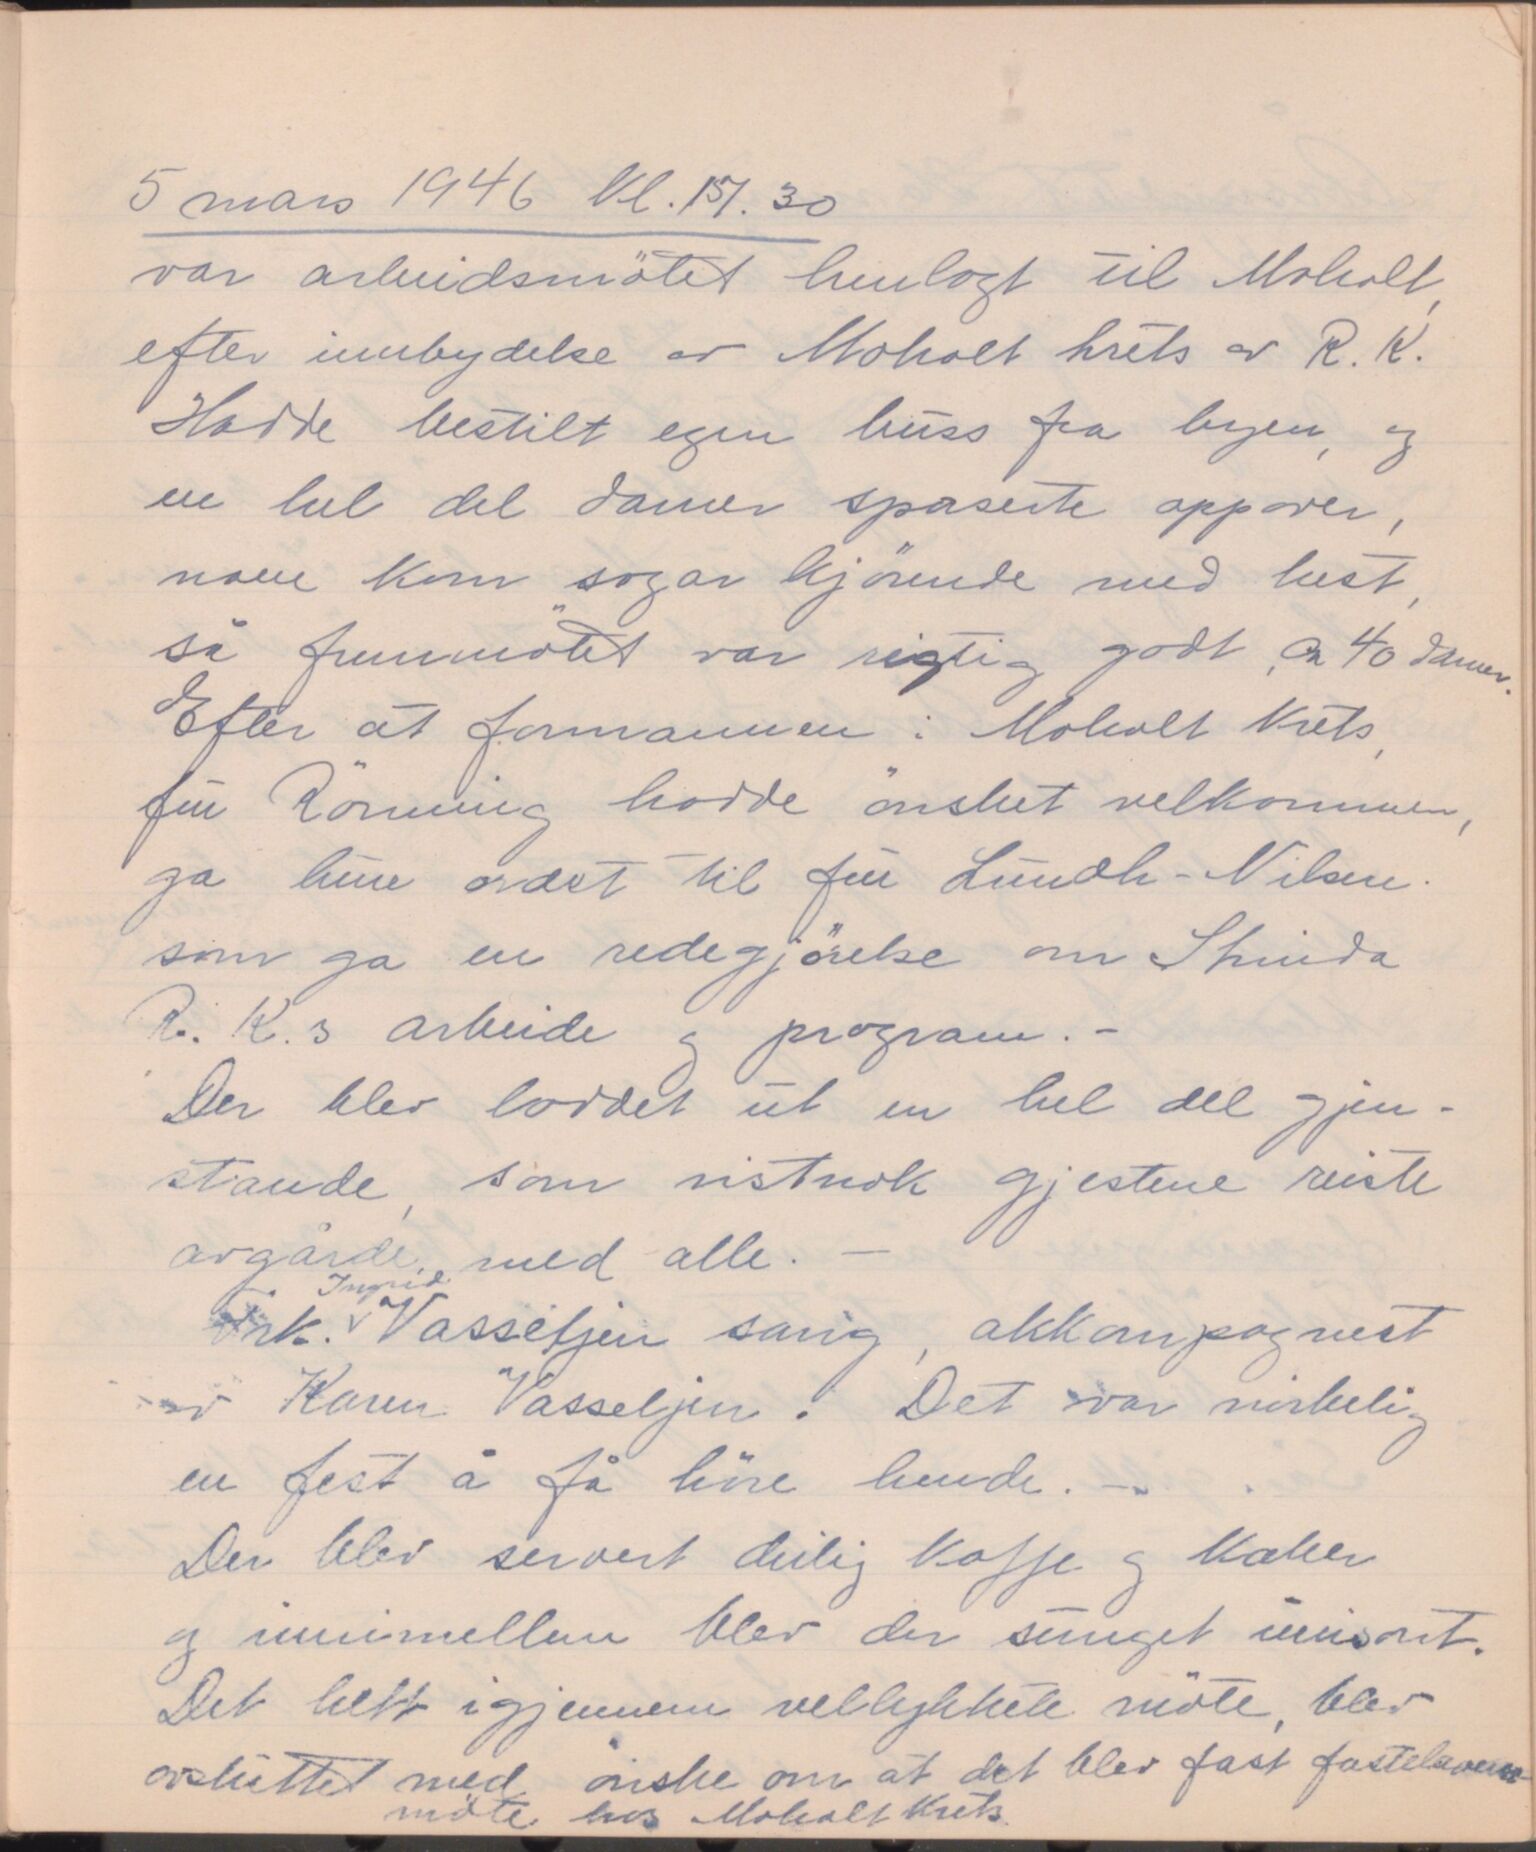 5 mars 1946 kl. 15.30
var arbeidsmötet henlagt til Moholt,
efter innbydelse av Moholt krets av R. K.
Hadde bestilt egen buss fra byen, og
en hel del damer spaserte oppover,
noen kom sogar kjörende med hest,
så fremmötet var rigtig godt, ca 40 damer.
Efter at formannen i Moholt krets,
fru Rönning hadde önsket velkommen,
ga hun ordet til fru Lundh-Nilsen.
som ga en redegjörelse om Strinda
R. K.s arbeide og program. -
Der blev loddet ut en hel del gjen-
stande, som vistnok gjestene reiste
avgårde med alle. -
Ingrid
Frk. Vasseljen sang, akkompagnert
av Karen Vasseljen. Det var virkelig
en fest å få höre hende. -
Der blev servert deilig kaffe og kaker
og innimellem blev der sunget unisont.
Det helt igjennem vellykkete möte, blev
avsluttet med önske om at det blev fast fastelavens-
möte hos Moholt krets.